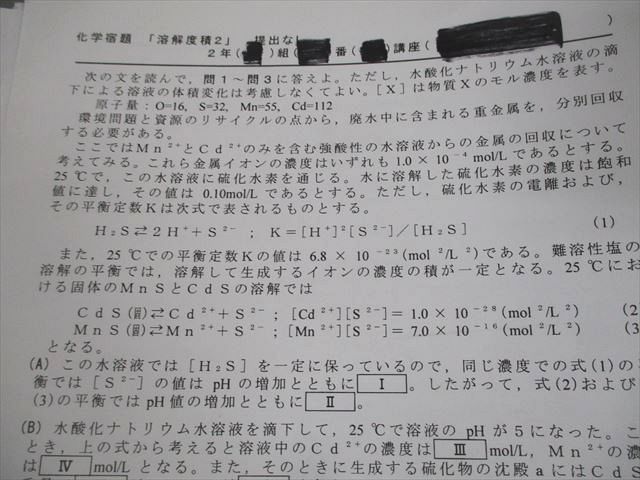 化学宿題 「溶解度積2」 提出な
２年( )組( 番( )講座( )
次の文を読んで，問１～問３に答えよ。ただし，水酸化ナトリウム水溶液の滴
下による溶液の体積変化は考慮しなくてよい。[Ｘ]は物質Ｘのモル濃度を表す。
原子量：O=16, S=32, Mn=55, Cd=112
環境問題と資源のリサイクルの点から，廃水中に含まれる重金属を，分別回収
する必要がある。
ここではＭｎ²⁺とＣｄ²⁺のみを含む強酸性の水溶液からの金属の回収について
考えてみる。これら金属イオンの濃度はいずれも 1.0 × 10⁻⁴ mol/L であるとする。
25 ℃で，この水溶液に硫化水素を通じる。水に溶解した硫化水素の濃度は飽和
値に達し，その値は 0.10mol/L であるとする。ただし，硫化水素の電離および，
その平衡定数Ｋは次式で表されるものとする。
Ｈ₂Ｓ⇄２Ｈ⁺＋Ｓ²⁻ ； Ｋ＝[Ｈ⁺]²[Ｓ²⁻]／[Ｈ₂Ｓ] (1)
また，25 ℃での平衡定数Ｋの値は 6.8 × 10⁻²³(mol ²/L ²)である。難溶性塩の
溶解の平衡では，溶解して生成するイオンの濃度の積が一定となる。25 ℃にお
ける固体のＭｎＳとＣｄＳの溶解では
ＣｄＳ(固)⇄Ｃｄ²⁺＋Ｓ²⁻；[Cd²⁺][Ｓ²⁻]＝ 1.0 × 10⁻²⁸(mol ²/L²) (2
ＭｎＳ(固)⇄Ｍｎ²⁺＋Ｓ²⁻；[Mn²⁺][Ｓ²⁻]＝ 7.0 × 10⁻¹⁶(mol ²/L²) (3
となる。
(A) この水溶液では[Ｈ₂Ｓ]を一定に保っているので，同じ濃度での式(1)の
衡では[Ｓ²⁻]の値は pH の増加とともに Ⅰ 。したがって，式(2)および
(3)の平衡では pH 値の増加とともに Ⅱ 。
(B) 水酸化ナトリウム水溶液を滴下して，25 ℃で溶液の pH が５になった。こ
とき，上の式から考えると溶液中のＣｄ²⁺の濃度は Ⅲ mol/L，Ｍｎ²⁺の濃
は Ⅳ mol/L となる。また，そのときに生成する硫化物の沈殿 a には CdS